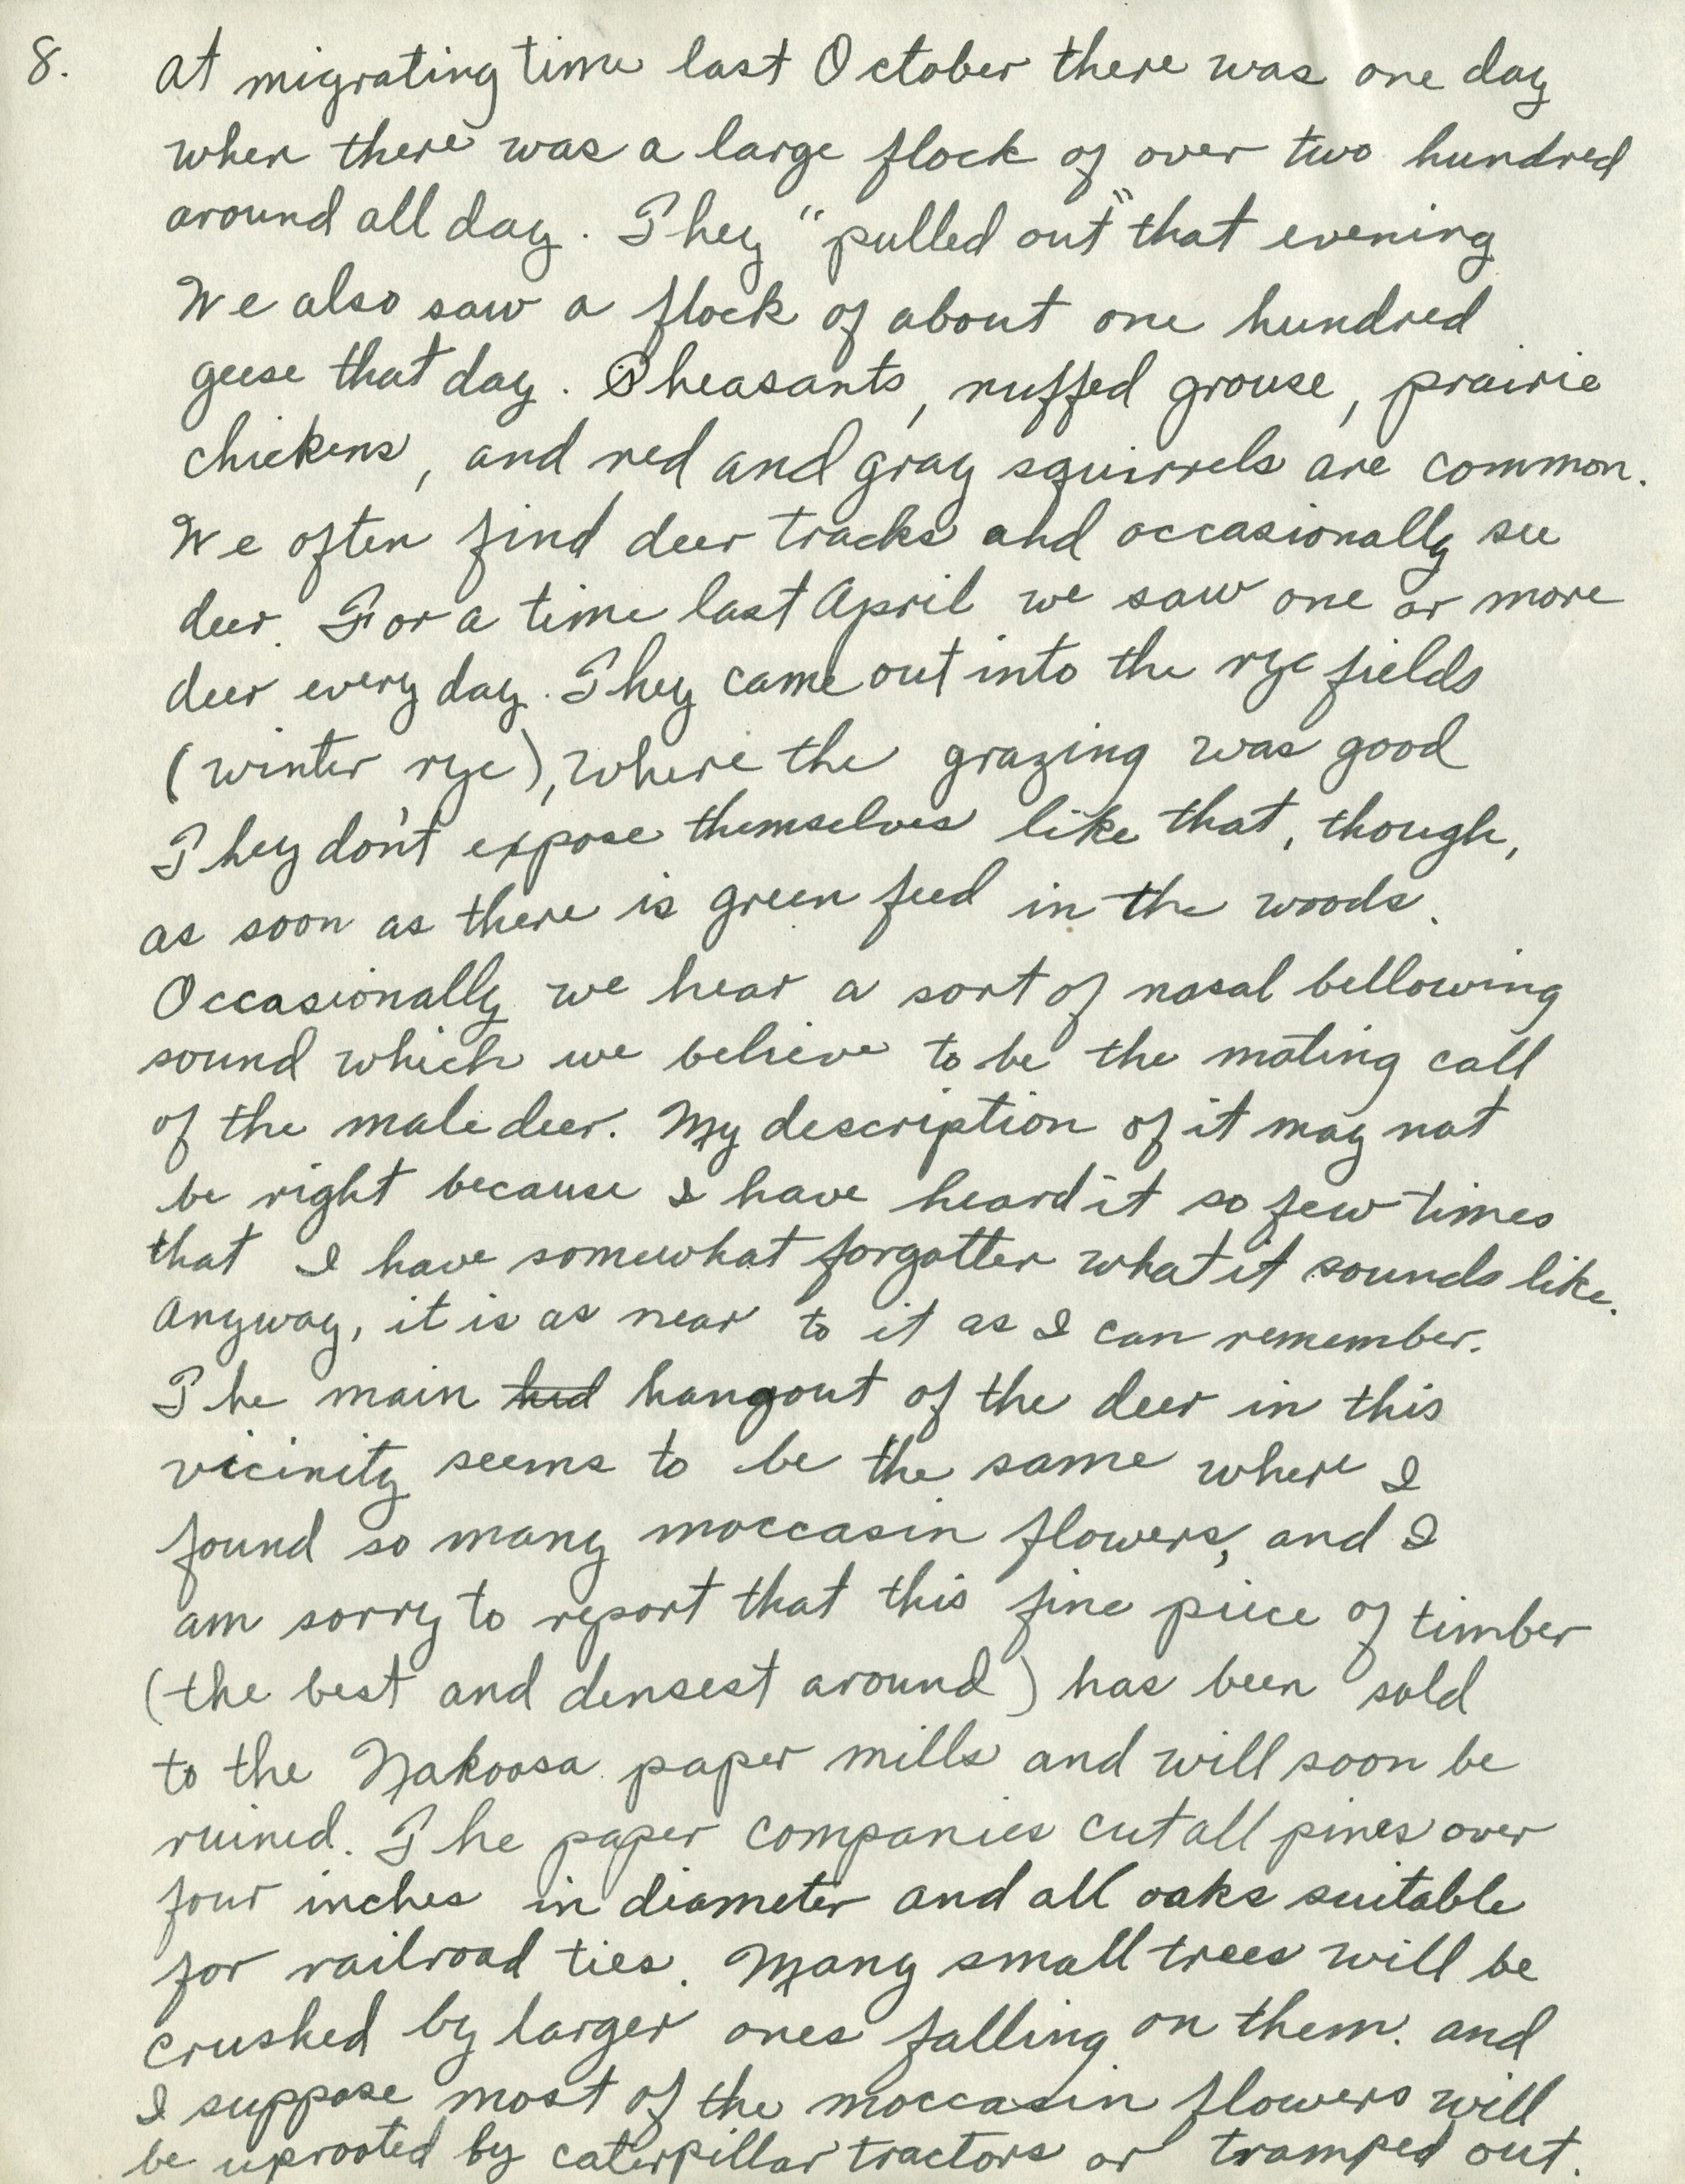 8.
At migrating time last October there was one day
when there was a large flock of over two hundred
around all day. They "pulled out" that evening
We also saw a flock of about one hundred
geese that day. Pheasants, ruffed grouse, prairie
chickens, and red and gray squirrels are common.
We often find deer tracks and occasionally see
deer. For a time last April we saw one or more
deer every day. They came out into the rye fields
(winter rye), where the grazing was good
They don't expose themselves like that, though,
as soon as there is green feed in the woods.
Occasionally we hear a sort of nasal bellowing
sound which we believe to be the mating call
of the male deer. My description of it may not
be right because I have heard it so few times
that I have somewhat forgotten what it sounds like.
Anyway, it is as near to it as I can remember.
The main hid hangout of the deer in this
vicinity seems to be the same where I
found so many moccasin flowers, and I
am sorry to report that this fine piece of timber
(the best and densest around) has been sold
to the Nakoosa paper mills and will soon be
ruined. The paper companies cut all pines over
four inches in diameter and all oaks suitable
for railroad ties. Many small trees will be
crushed by larger ones falling on them. and
I suppose most of the moccasin flowers will
be uprooted by caterpillar tractors or tramped out.